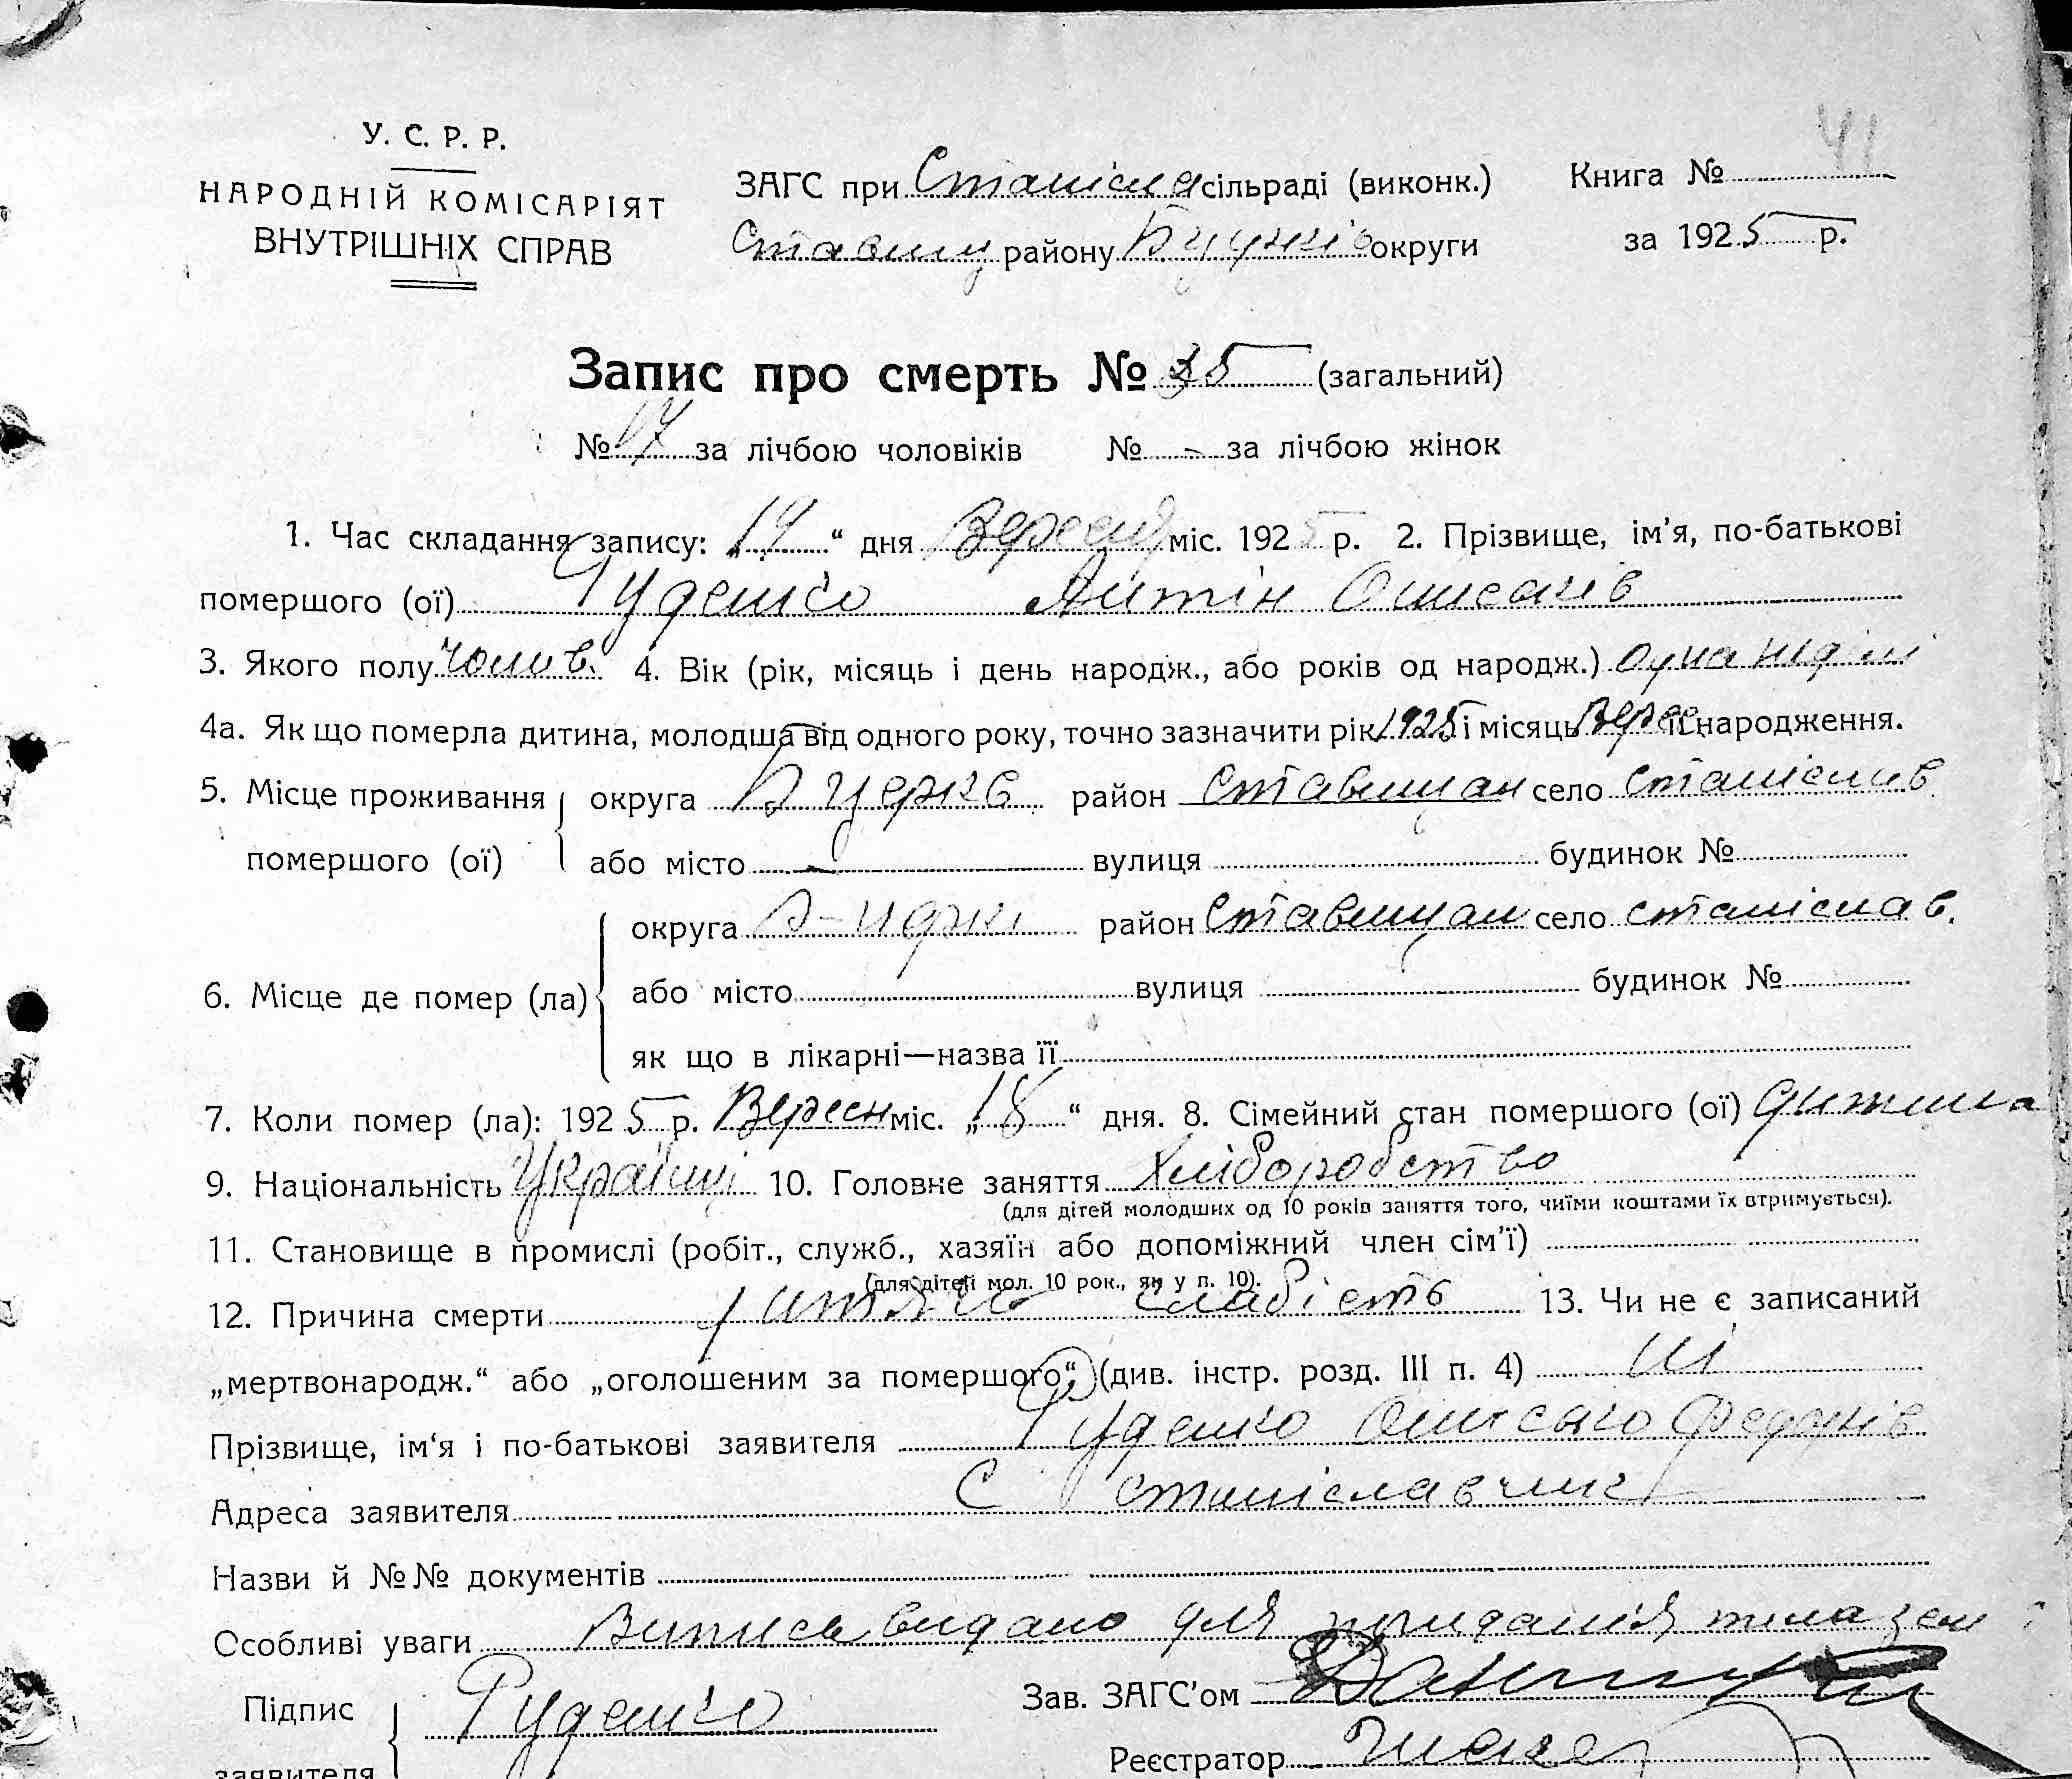 41
У. С. Р. Р.
НАРОДНІЙ КОМІСАРІЯТ
ВНУТРІШНІХ СПРАВ
ЗАГС при Станісла сільраді (виконк.)
Ставищ району Б Церків округи
Книга №
за 1925 р.
Запис про смерть № 35 (загальний)
№ 17 за лічбою чоловіків № - за лічбою жінок
1. Час складання запису: „19“ дня Вересня міс. 1925 р. 2. Прізвище, ім’я, по-батькові
помершого (ої) Руденко Антін Ониськів
3. Якого полу чолов. 4. Вік (рік, місяць і день народж., або років од народж.) одна неділя
4а. Як що померла дитина, молодша від одного року, точно зазначити рік 1925 і місяць Верес її народження.
5. Місце проживання округа Б Церкв район Ставищан село Станіслав
помершого (ої) або місто - вулиця будинок №
округа Б-Церк район Ставищан село Станіслав.
6. Місце де помер (ла) або місто вулиця будинок №
як що в лікарні—назва її
7. Коли помер (ла): 1925 р. Вересн міс. „18“ дня. 8. Сімейний стан помершого (ої) дитина
9. Національність Україн 10. Головне заняття Хліборобство
(для дітей молодших од 10 років заняття того, чиїми коштами їх втримується).
11. Становище в промислі (робіт., служб., хазяїн або допоміжний член сім’ї)
(для дітей мол. 10 рок., як у п. 10).
12. Причина смерти слабість 13. Чи не є записаний
„мертвонародж.“ або „оголошеним за помершого“ (див. інстр. розд. III п. 4) Ні
Прізвище, ім‘я і по-батькові заявителя Руденко Онисько Федорів
Адреса заявителя С Станіславчик
Назви й №№ документів
Особливі уваги Випись видано для тила зем
Підпис Руденко Зав. ЗАГС’ом
заявителя Реєстратор